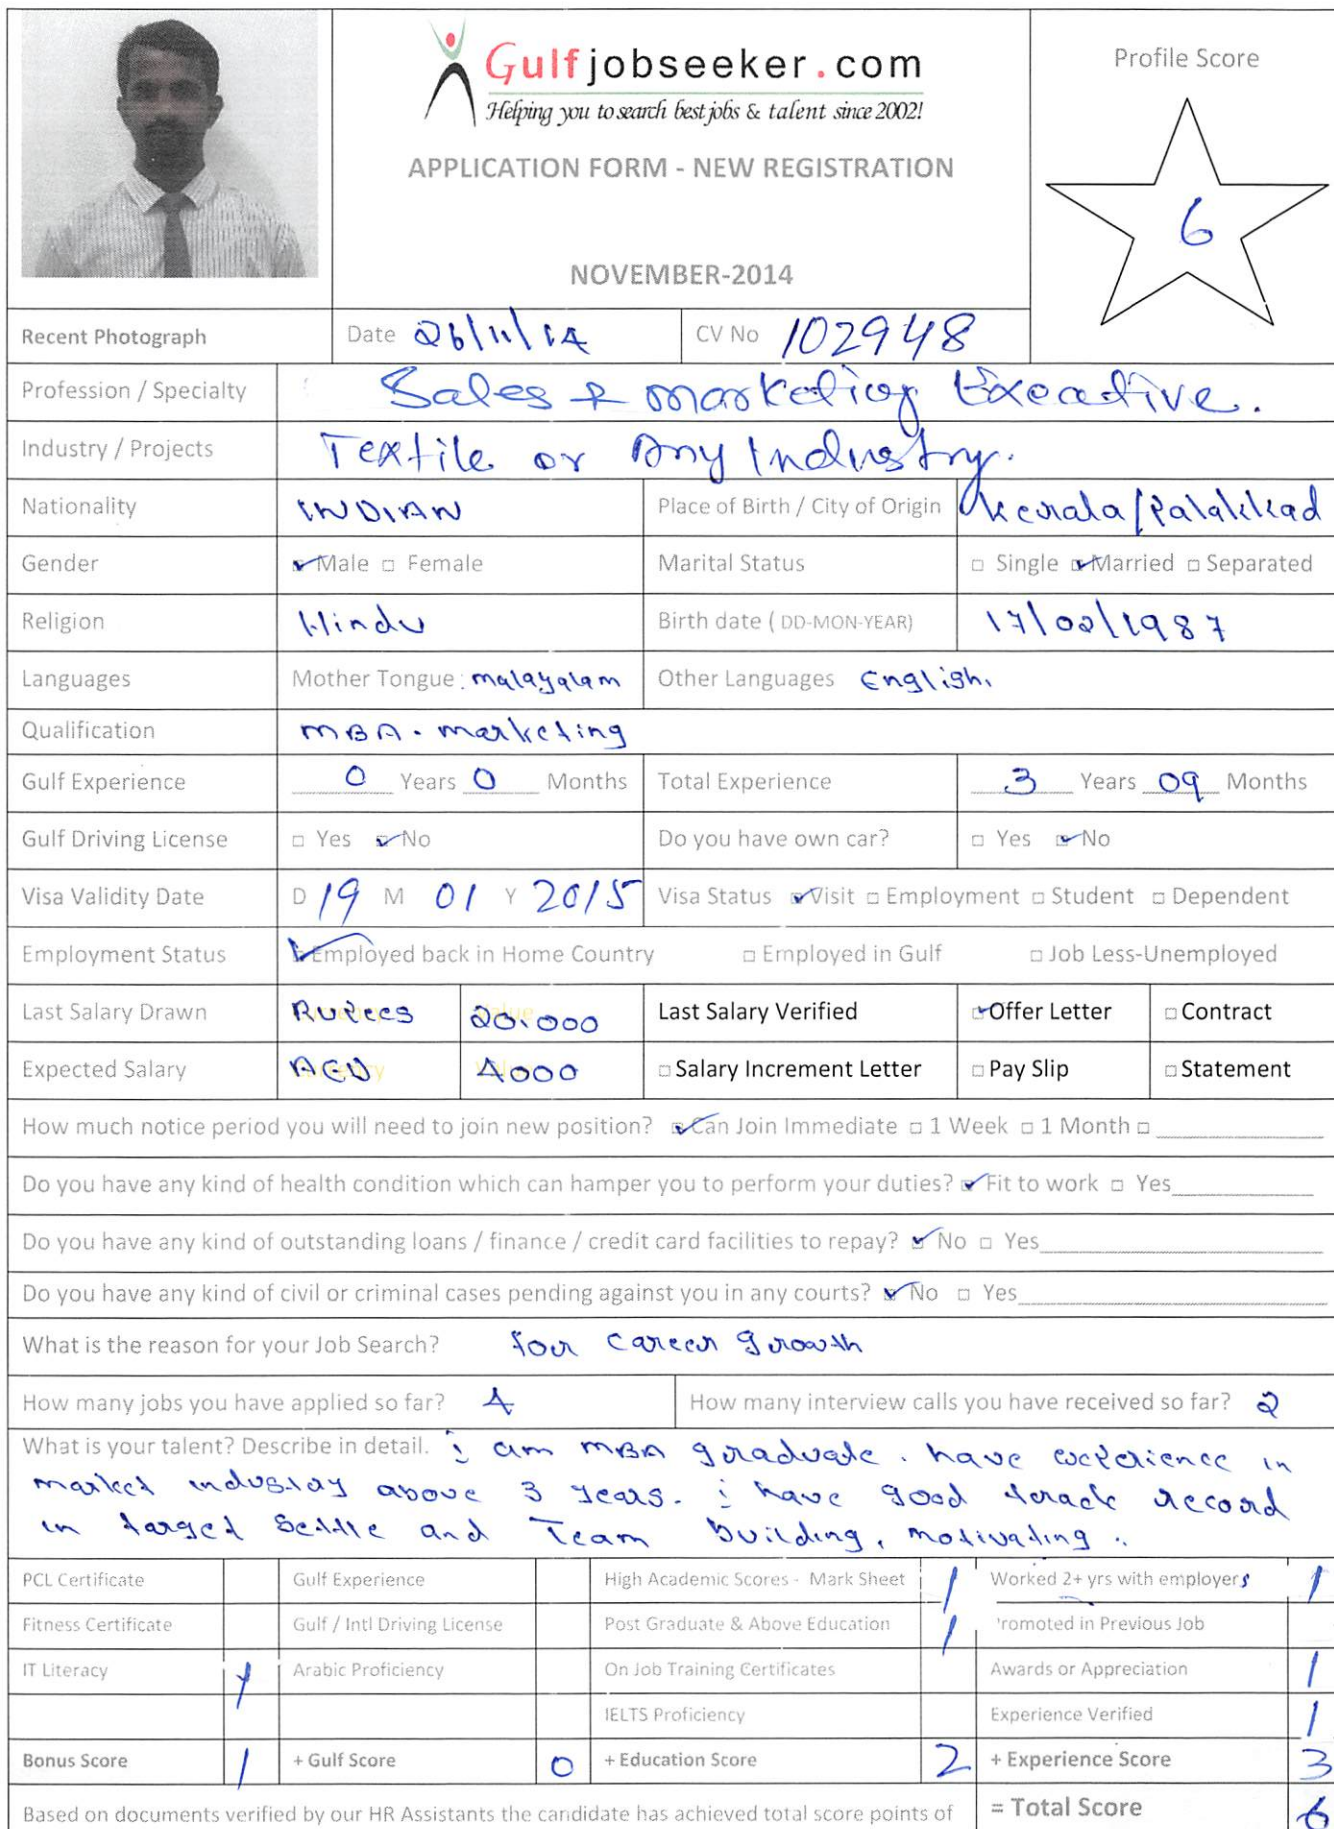 Gulfjobseeker.com
Helping you to search best jobs & talent since 2002!
APPLICATION FORM - NEW REGISTRATION
NOVEMBER-2014
Profile Score
6
Recent Photograph
Date 26/11/14
CV No 102948
Profession / Specialty Sales & marketing Executive.
Industry / Projects Textile or Any Industry.
Nationality INDIAN Place of Birth / City of Origin Kerala/Palakkad
Gender Male Female Marital Status Single Married Separated
Religion Hindu Birth date ( DD-MON-YEAR) 17/02/1987
Languages Mother Tongue : malayalam Other Languages English.
Qualification MBA - marketing
Gulf Experience 0 Years 0 Months Total Experience 3 Years 09 Months
Gulf Driving License Yes No Do you have own car? Yes No
Visa Validity Date D 19 M 01 Y 2015 Visa Status Visit Employment Student Dependent
Employment Status Employed back in Home Country Employed in Gulf Job Less-Unemployed
Last Salary Drawn Rupees 20.000 Last Salary Verified Offer Letter Contract
Expected Salary AED 4000 Salary Increment Letter Pay Slip Statement
How much notice period you will need to join new position? Can Join Immediate 1 Week 1 Month
Do you have any kind of health condition which can hamper you to perform your duties? Fit to work Yes
Do you have any kind of outstanding loans / finance / credit card facilities to repay? No Yes
Do you have any kind of civil or criminal cases pending against you in any courts? No Yes
What is the reason for your Job Search? for career growth
How many jobs you have applied so far? 4 How many interview calls you have received so far? 2
What is your talent? Describe in detail. i am MBA graduate. have experience in
market industry above 3 years. i have good track record
in target settle and Team building, motivating.
PCL Certificate Gulf Experience High Academic Scores - Mark Sheet 1 Worked 2+ yrs with employers 1
Fitness Certificate Gulf / Intl Driving License Post Graduate & Above Education 1 romoted in Previous Job
IT Literacy 1 Arabic Proficiency On Job Training Certificates Awards or Appreciation 1
IELTS Proficiency Experience Verified 1
Bonus Score 1 + Gulf Score 0 + Education Score 2 + Experience Score 3
Based on documents verified by our HR Assistants the candidate has achieved total score points of = Total Score 6